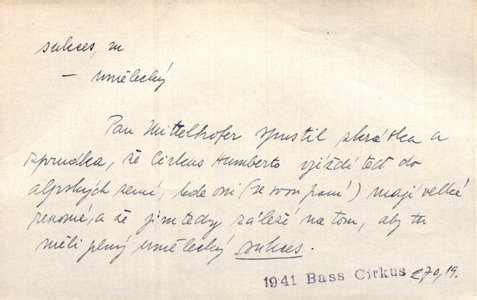 sukces, m
– umělecký
Pan Mittelhofer spustil zkrátka a
zprudka, že Cirkus Humberto vjíždí teď do
alpských zemí, kde oni (se svou paní) mají velké
renomé, a že jim tedy záleží na tom, aby tu
měli plný umělecký sukces.
1941 Bass Cirkus 270,19.